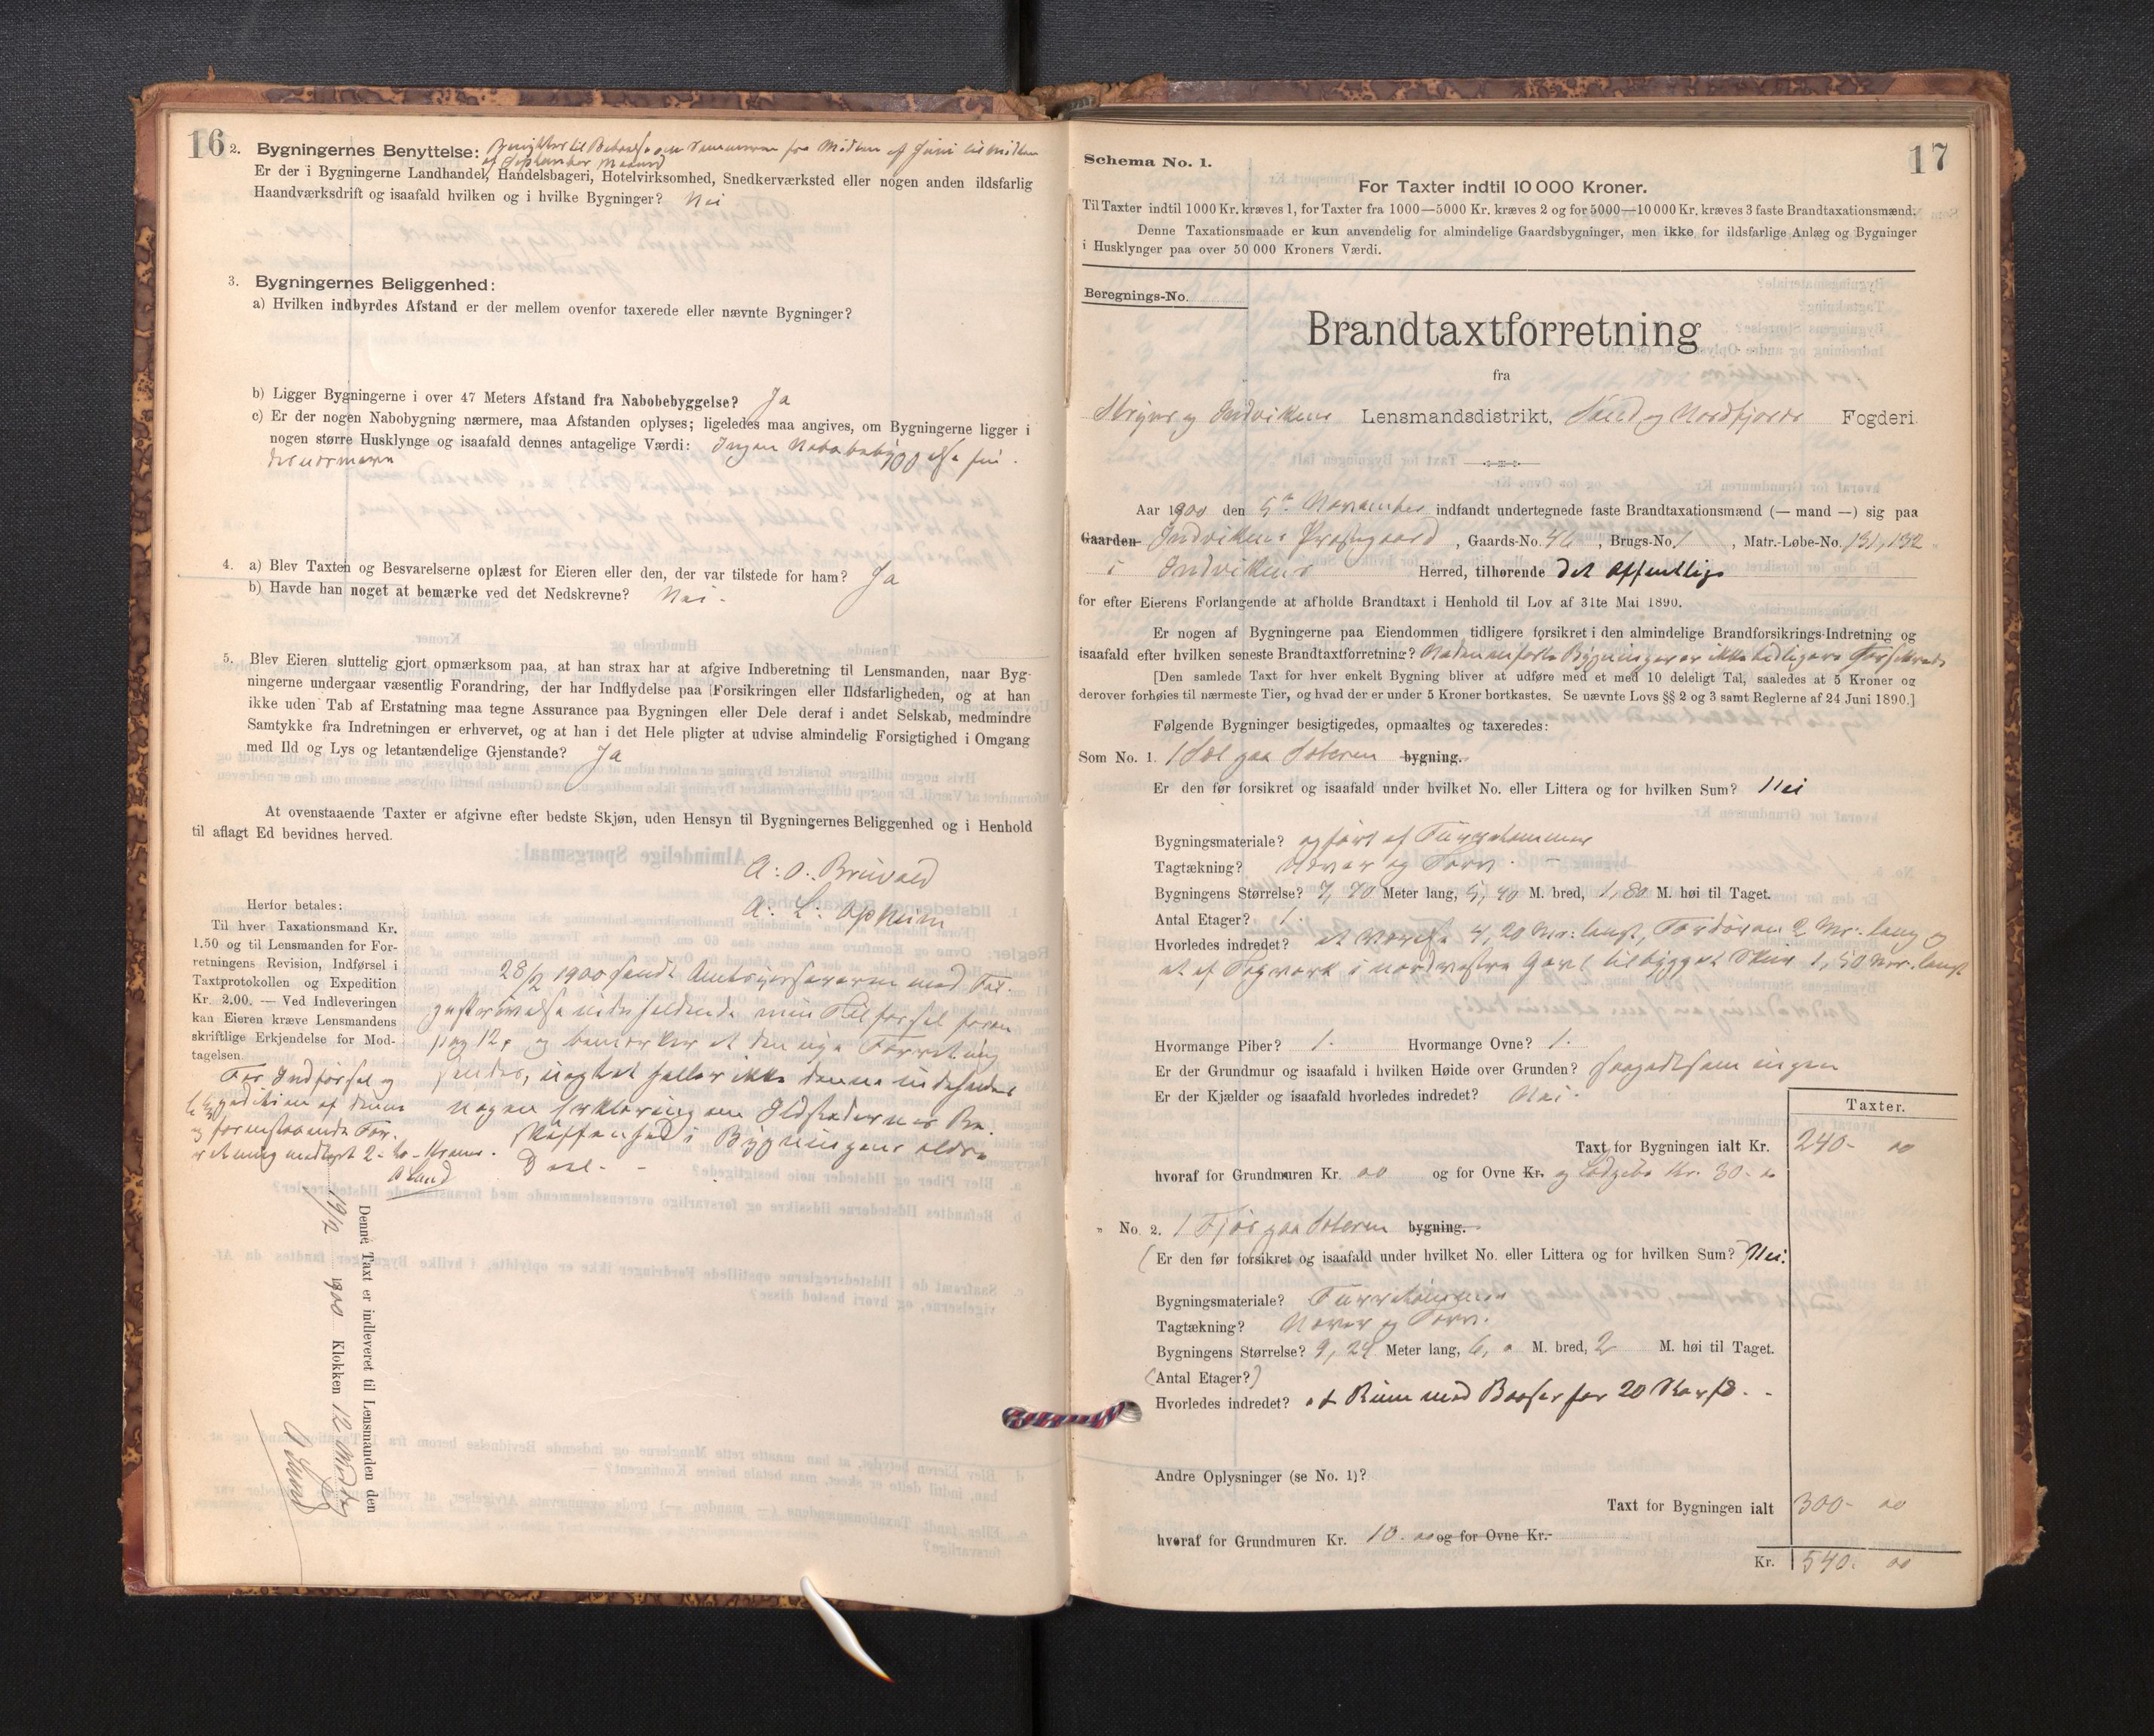 16
2. Bygningernes Benyttelse: Benyttes til Beboelse om Sommeren fra Midten af Juni til Midten
af September Maaned
Er der i Bygningerne Landhandel, Handelsbageri, Hotelvirksomhed, Snedkerværksted eller nogen anden ildsfarlig
Haandværksdrift og isaafald hvilken og i hvilke Bygninger? Nei
3. Bygningernes Beliggenhed:
a) Hvilken indbyrdes Afstand er der mellem ovenfor taxerede eller nævnte Bygninger?
b) Ligger Bygningerne i over 47 Meters Afstand fra Nabobebyggelse? Ja
c) Er der nogen Nabobygning nærmere, maa Afstanden oplyses; ligeledes maa angives, om Bygningerne ligger i
nogen større Husklynge og isaafald dennes antagelige Værdi: Ingen
4. a) Blev Taxten og Besvarelserne oplæst for Eieren eller den, der var tilstede for ham? Ja
b) Havde han noget at bemærke ved det Nedskrevne? Nei.
5. Blev Eieren sluttelig gjort opmærksom paa, at han strax har at afgive Indberetning til Lensmanden, naar Byg-
ningerne undergaar væsentlig Forandring, der har Indflydelse paa Forsikringen eller Ildsfarligheden, og at han
ikke uden Tab af Erstatning maa tegne Assurance paa Bygningen eller Dele deraf i andet Selskab, medmindre
Samtykke fra Indretningen er erhvervet, og at han i det Hele pligter at udvise almindelig Forsigtighed i Omgang
med Ild og Lys og letantændelige Gjenstande? Ja
At ovenstaaende Taxter er afgivne efter bedste Skjøn, uden Hensyn til Bygningernes Beliggenhed og i Henhold
til aflagt Ed bevidnes herved.
A. O. Bruvold
A. L. Opheim
Herfor betales:
Til hver Taxationsmand Kr.
1.50 og til Lensmanden for For-
retningens Revision, Indførsel i
Taxtprotokollen og Expedition
Kr. 2.00. — Ved Indleveringen
kan Eieren kræve Lensmandens
skriftlige Erkjendelse for Mod-
tagelsen.
For Indførsel og
Expedition af denne
og foranstaaende For-
retning modtaget 2- to - Kroner.
28/12 1900 sendt Amtsingeniøren med
pag 12, og bemærker at den nye Forretning
sendes, ikke denne indeholder
nogen Erklæring om Ildstedernes Be-
skaffenhed i Bygningens ældre
Deel.
Denne Taxt er indleveret til Lensmanden den
19/12 1900 Klokken 12 Middag
17
Schema No. 1.
For Taxter indtil 10 000 Kroner.
Til Taxter indtil 1000 Kr. kræves 1, for Taxter fra 1000—5000 Kr. kræves 2 og for 5000—10 000 Kr. kræves 3 faste Brandtaxationsmænd.
Denne Taxationsmaade er kun anvendelig for almindelige Gaardsbygninger, men ikke for ildsfarlige Anlæg og Bygninger
i Husklynger paa over 50 000 Kroners Værdi.
Beregnings-No.
Brandtaxtforretning
fra
Stryns og Indvikens Lensmandsdistrikt, Sønd og Nordfjords Fogderi
Aar 1900 den 5te November indfandt undertegnede faste Brandtaxationsmænd (— mand —) sig paa
Gaarden Indvikens Præstegaard, Gaards-No. 46, Brugs-No. 1, Matr.-Løbe-No. 131, 132
i Indvikens Herred, tilhørende det Offentlige
for efter Eierens Forlangende at afholde Brandtaxt i Henhold til Lov af 31te Mai 1890.
Er nogen af Bygningerne paa Eiendommen tidligere forsikret i den almindelige Brandforsikrings-Indretning og
isaafald efter hvilken seneste Brandtaxtforretning? Nedenanførte Bygninger er ikke tidligere forsikrede
[Den samlede Taxt for hver enkelt Bygning bliver at udføre med et med 10 deleligt Tal, saaledes at 5 Kroner og
derover forhøies til nærmeste Tier, og hvad der er under 5 Kroner bortkastes. Se nævnte Lovs §§ 2 og 3 samt Reglerne af 24 Juni 1890.]
Følgende Bygninger besigtigedes, opmaaltes og taxeredes:
Som No. 1. 1 Sel paa Støleren bygning.
Er den før forsikret og isaafald under hvilket No. eller Littera og for hvilken Sum? Nei
Bygningsmateriale? opført af Furretømmer
Tagtækning? Næver og Torv.
Bygningens Størrelse? 7,70 Meter lang, 5,40 M. bred, 1,80 M. høi til Taget.
Antal Etager? 1.
Hvorledes indredet? et Værelse 4,20 Mtr. langt, Fordøren 2 Mtr. lang og
et af Bygværk i nordvestre Gavl tilbygget Skur 1,50 Mtr. langt
Hvormange Piber? 1. Hvormange Ovne? 1.
Er der Grundmur og isaafald i hvilken Høide over Grunden? saagodtsom ingen
Er der Kjælder og isaafald hvorledes indredet? Nei.
Taxter.
Taxt for Bygningen ialt Kr. 240- 00
hvoraf for Grundmuren Kr. 00 og for Ovne Kr. og Kr. 30-
" No. 2. 1 Fjøs paa Støleren bygning.
(Er den før forsikret og isaafald under hvilket No. eller Littera og for hvilken Sum? Nei.
Bygningsmateriale? Furretømmer
Tagtækning? Næver og Torv.
Bygningens Størrelse? 9,24 Meter lang, 6,0 M. bred, 2 M. høi til Taget.
(Antal Etager?)
Hvorledes indredet? et Rum med Baaser for 20 Kør
Andre Oplysninger (se No. 1)?
Taxt for Bygningen ialt 300- 00
hvoraf for Grundmuren Kr. 10.00 og for Ovne Kr.
Kr. 540. 00